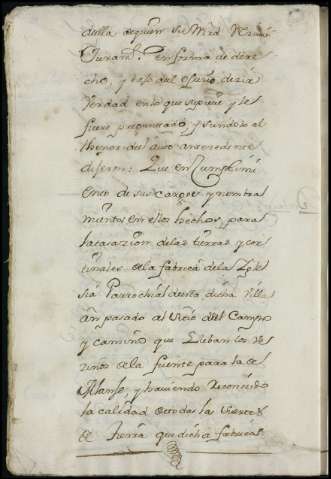 dulla a quien su Mrd Reciuio
Juram.to en forma de dere
cho, y vajo del ofrecieron decir
Verdad en lo que supiere y les
fuere preguntado y siendolo al
thenor del auto antecedente
dijeron: Que en Cumplimi
ento de sus cargos y nombra
mientos en ellos hechos, para
la tasazion de las tierras y cor
tinales de la fabrica de la Igle
sia Parrochial de esta dicha villa
an pasado al sitio del Campo
y camino que llaban los ve
cinos a la fuente para la de
y haviendo Reconozido
la calidad de todas las
de tierra que dicha fabrica